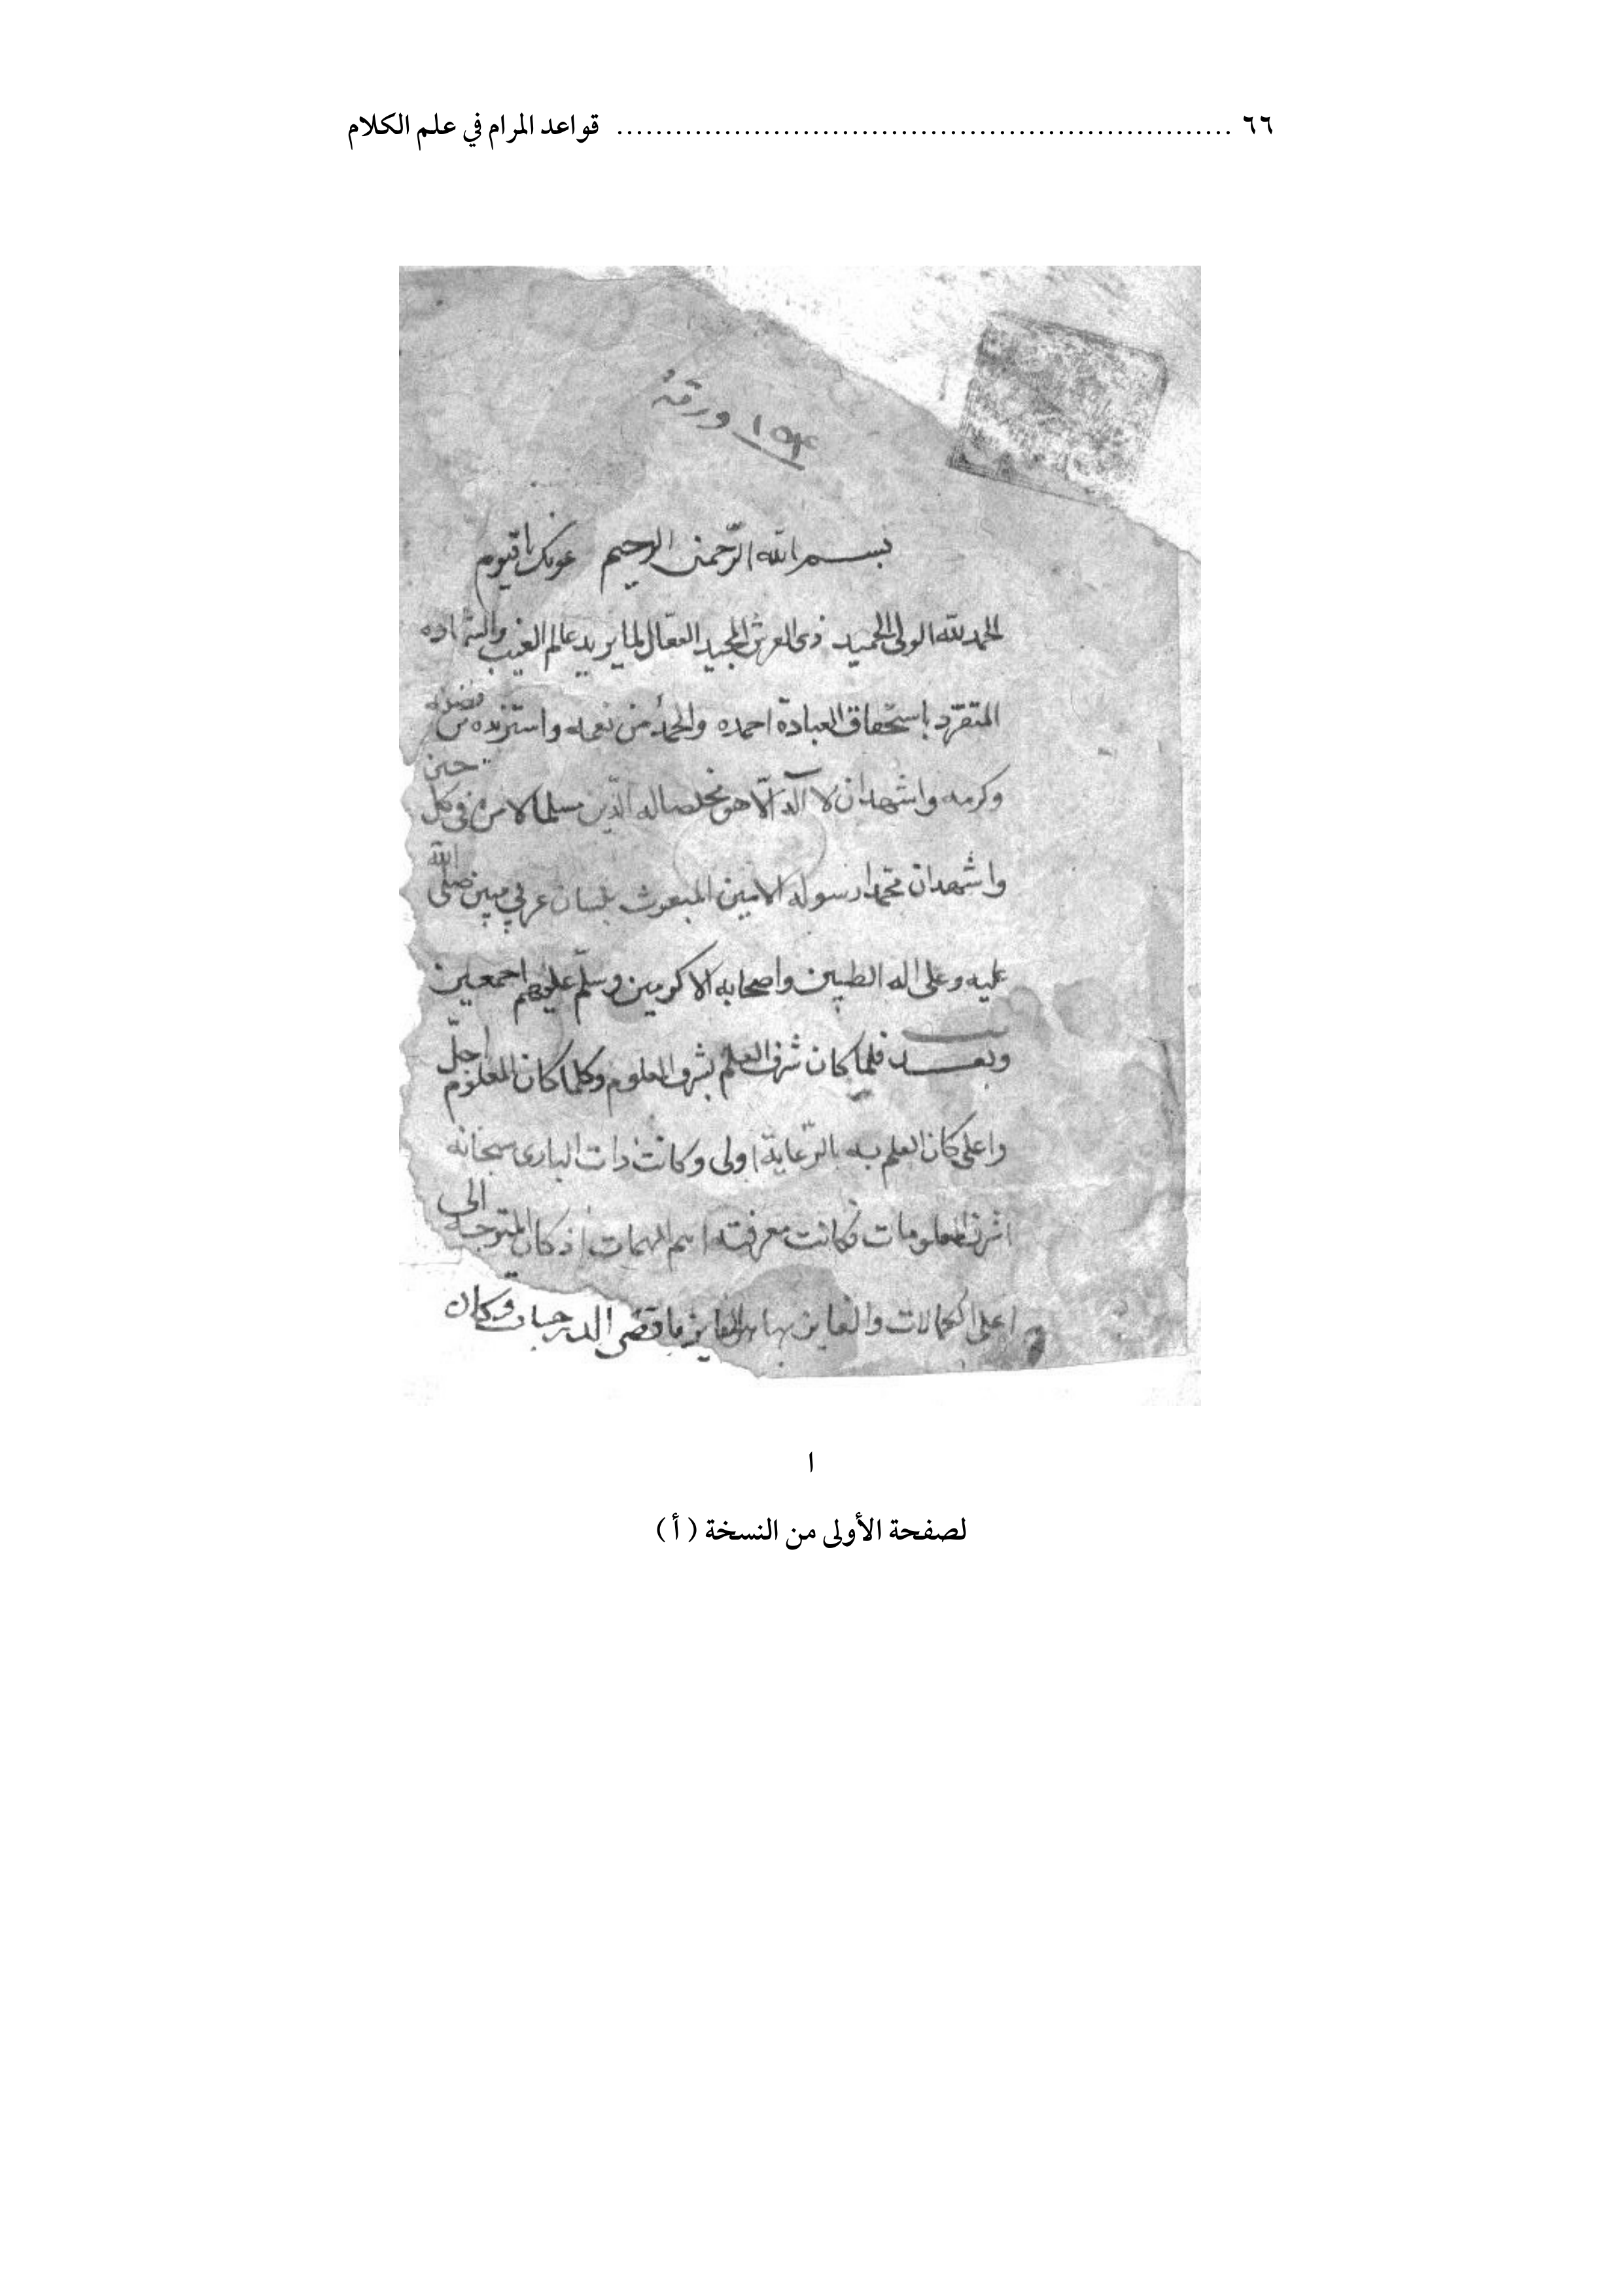 ٦٦ ............................................................... قواعد المرام في علم الكلام
١٥٤ ورقة
بسم الله الرّحمن الرحيم عونك يا قيّوم
الحمد لله الولى الحميد ذى العرش المجيد الفعّال لما يريد عالم الغيب والشهاده
المتفرّد باستحقاق العبادة احمده والحمدُ من نعمه واستزيده من فضله
وكرمه واشهد ان لا آله الّا هو مخلصا له الدّين مسلما لامره فى كل حين
واشهد ان محمّدا رسوله الامين المبعوث بلسان عربي مبين صلى الله
عليه وعلى اله الطيبين واصحابه الاكرمين وسلّم عليهم اجمعين
وبعد فلما كان شرف العلم بشرف المعلوم وكلما كان المعلوم اجلّ
واعلى كان العلم به بالرّعاية اولى وكانت ذات البارى سبحانه
اشرف المعلومات فكانت معرفته اهم المهمات اذ كان المتوجه الى
اعلى الكمالات والفايز بها هو الفايز باقصى الدرجات وكان
ا
لصفحة الأولى من النسخة ( أ )